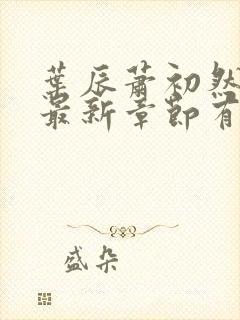 葉辰蕭初然
最新章節有
盛朵